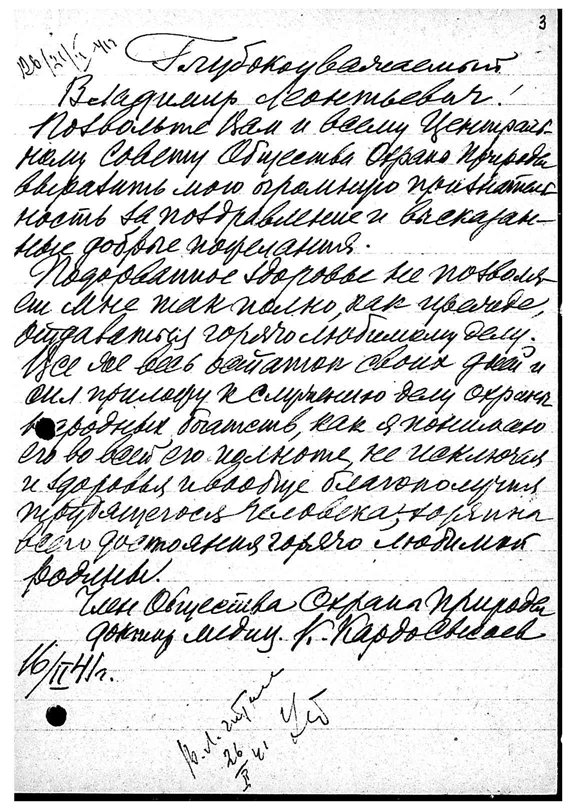 3
Глубокоуважаемый
Владимир Леонтьевич!
Позвольте Вам и всему Централь-
ному Совету Общества Охраны Природы
выразить мою огромную признатель-
ность за поздравление и высказан-
ные добрые пожелания.
Подорванное здоровье не позволя-
ет мне так полно, как прежде,
отдаваться горячо любимому делу.
Все же весь остаток своих дней и
сил приложу к служению делу охраны
природных богатств, как я понимаю
его во всей его полноте, не исключая
и здоровья и вообще благополучия
трудящегося человека, хозяина
всего достояния горячо любимой
Родины.
Член Общества Охраны Природы
доктор медиц. К. Кардо-Сысоев
16/II 41 г.
26
41